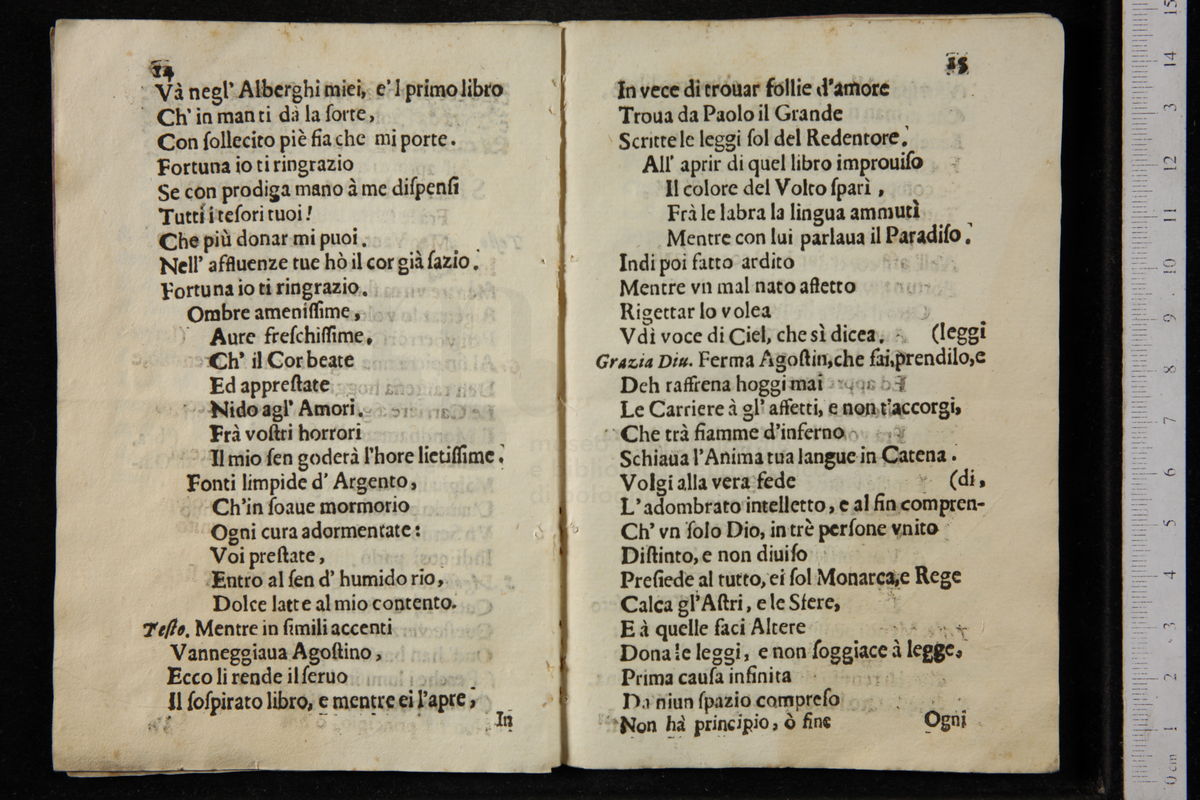 14
Và negl' Alberghi miei, e'l primo libro
Ch' in man ti dà la ſorte,
Con ſollecito piè fia che mi porte.
Fortuna io ti ringrazio
Se con prodiga mano à me diſpenſi
Tutti i teſori tuoi!
Che più donar mi puoi.
Nell' affluenze tue hò il cor già ſazio.
Fortuna io ti ringrazio.
Ombre ameniſſime,
Aure freſchiſſime,
Ch' il Cor beate
Ed appreſtate
Nido agl' Amori.
Frà voſtri horrori
Il mio ſen goderà l'hore lietiſſime.
Fonti limpide d' Argento,
Ch'in ſoaue mormorio
Ogni cura adormentate:
Voi preſtate,
Entro al ſen d' humido rio,
Dolce latte al mio contento.
Teſto. Mentre in ſimili accenti
Vanneggiaua Agoſtino,
Ecco li rende il ſeruo
Il ſoſpirato libro, e mentre ei l'apre,
In
15
In vece di trouar follie d'amore
Troua da Paolo il Grande
Scritte le leggi ſol del Redentore.
All' aprir di quel libro improuiſo
Il colore del Volto ſparì,
Frà le labra la lingua ammutì
Mentre con lui parlaua il Paradiſo.
Indi poi fatto ardito
Mentre vn mal nato affetto
Rigettar lo volea
Vdì voce di Ciel, che sì dicea. (leggi
Grazia Diu. Ferma Agoſtin, che fai, prendilo, e
Deh raffrena hoggi mai
Le Carriere à gl' affetti, e non t'accorgi,
Che trà fiamme d'inferno
Schiaua l'Anima tua langue in Catena.
Volgi alla vera fede (di,
L' adombrato intelletto, e al fin compren-
Ch' vn ſolo Dio, in trè perſone vnito
Diſtinto, e non diuiſo
Preſiede al tutto, ei ſol Monarca, e Rege
Calca gl'Aſtri, e le Sfere,
E à quelle faci Altere
Dona le leggi, e non ſoggiace à legge,
Prima cauſa infinita
Da niun ſpazio compreſo
Non hà principio, ò fine
Ogni